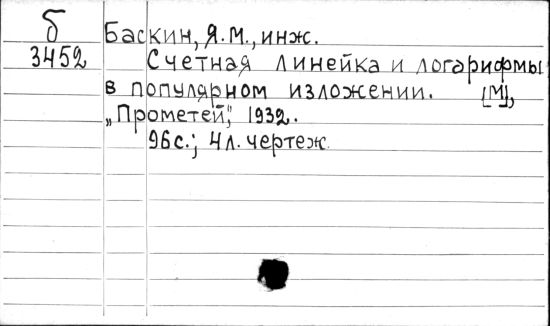 б
3452
Баскин, Я.М., инж.
Счетная линейка и логарифмы
в популярном изложении. [М],
„Прометей", 1932.
96с.; 4л. чертеж.